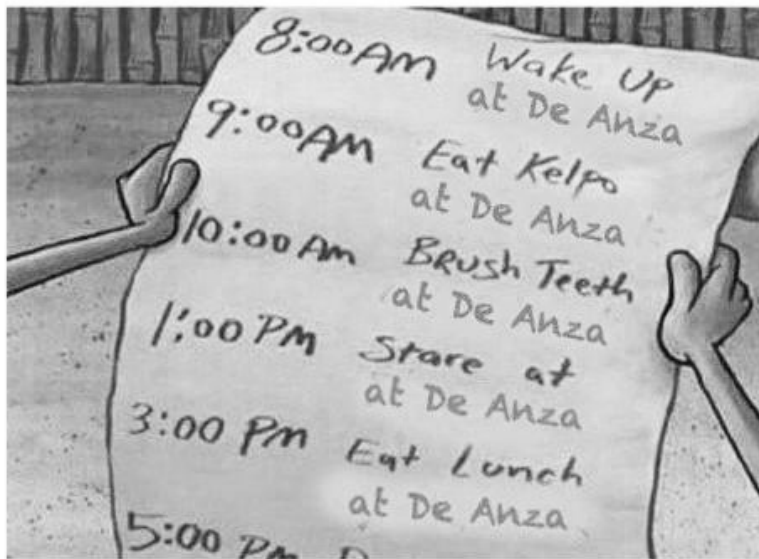 8:00 AM Wake Up
at De Anza
9:00 AM Eat Kelpo
at De Anza
10:00 Am Brush Teeth
at De Anza
1:00 PM Stare at
at De Anza
3:00 Pm Eat Lunch
at De Anza
5:00 Pm